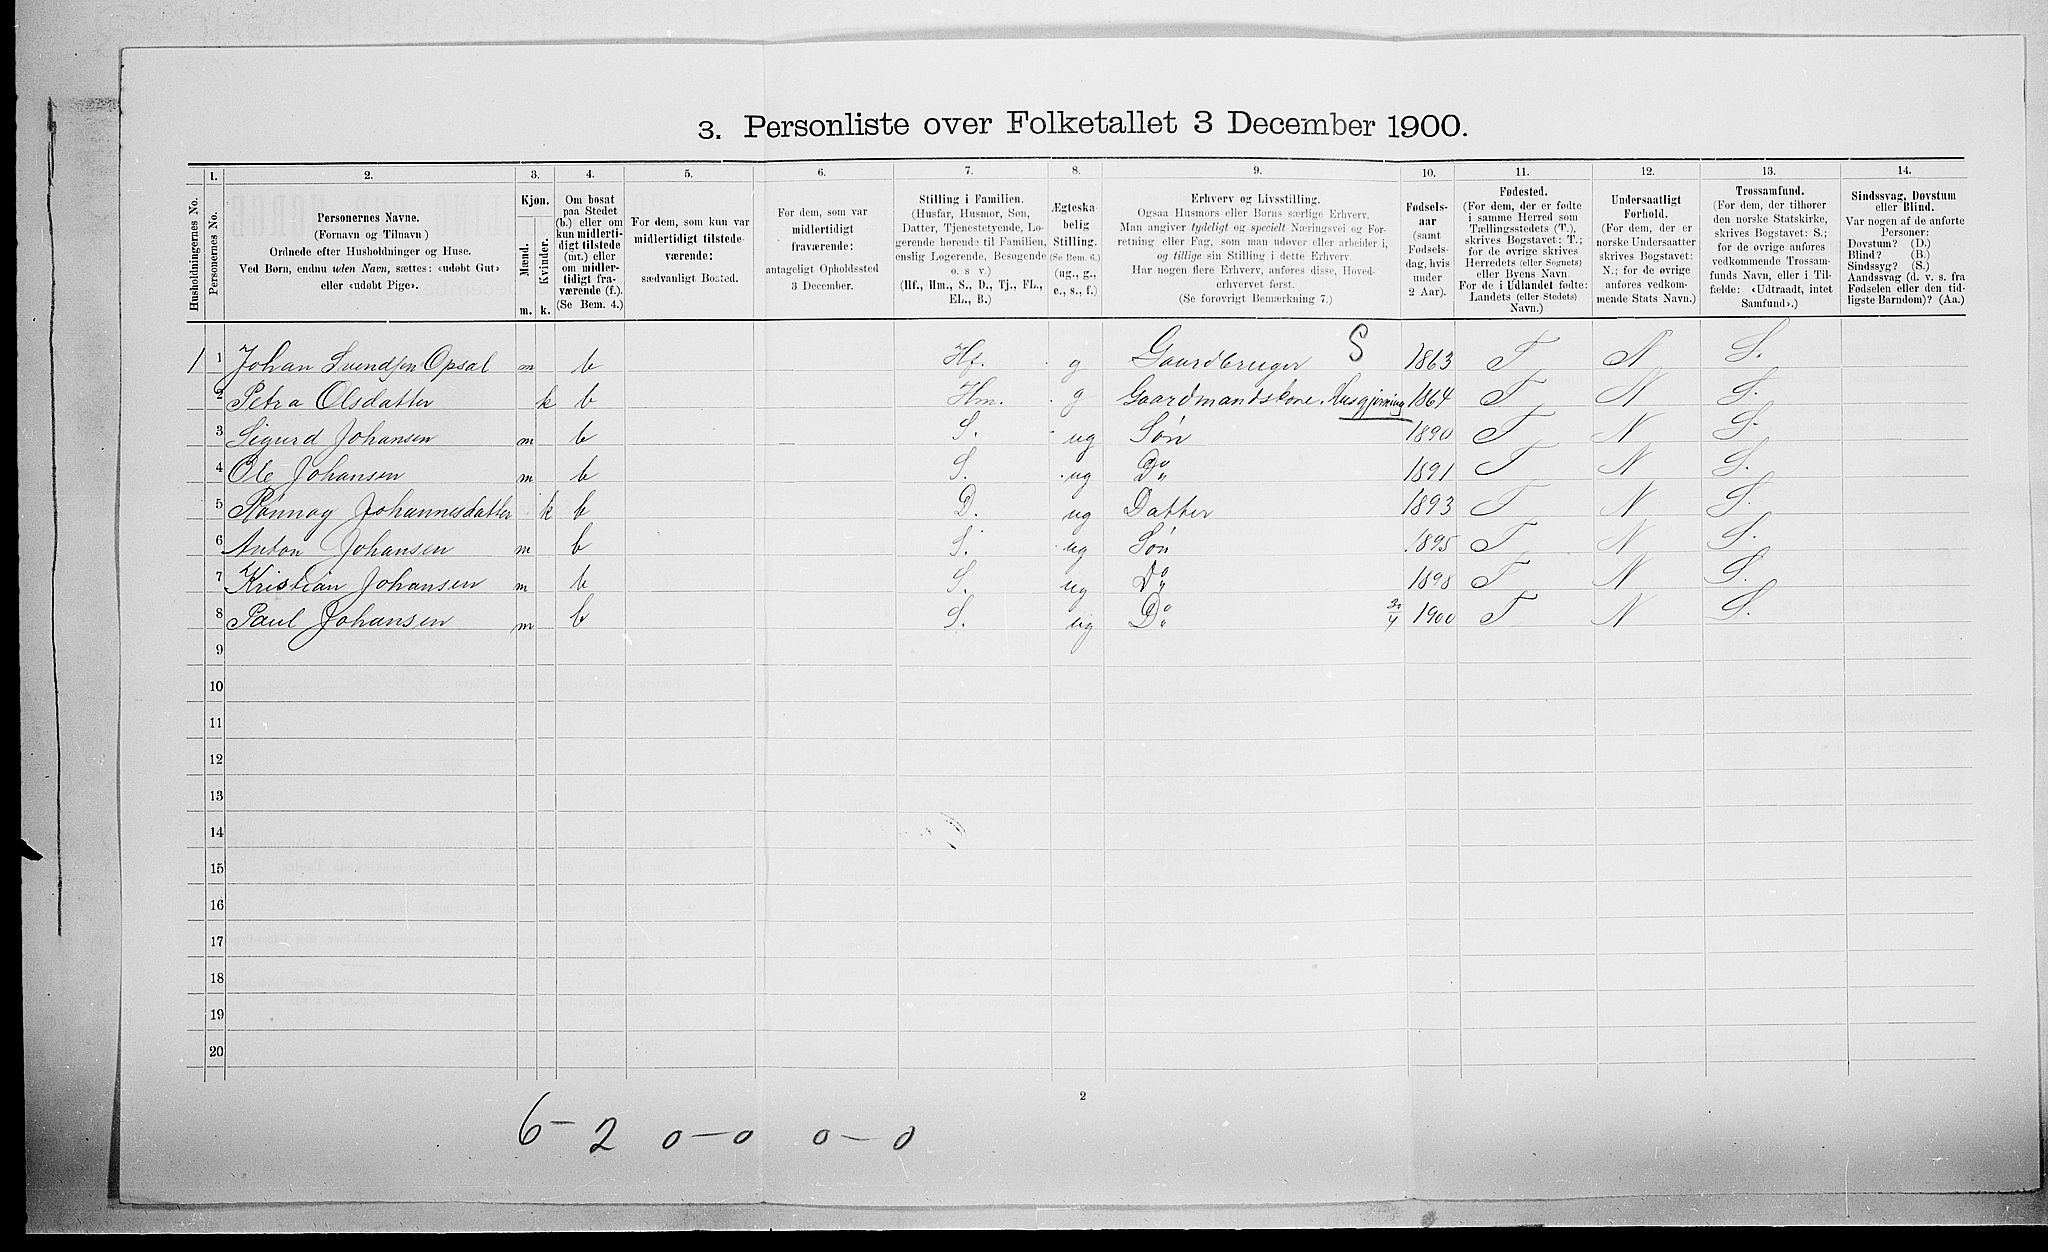 3. Personliste over Folketallet 3 December 1900.
1. 2. 3. 4. 5. 6. 7. 8. 9. 10. 11. 12. 13. 14.
Husholdningernes No.
Personernes No.
Personernes Navne.
(Fornavn og Tilnavn)
Ordnede efter Husholdninger og Huse.
Ved Børn, endnu uden Navn, sættes: «udøbt Gut»
eller «udøbt Pige».
Kjøn.
Mænd.
Kvinder.
m. k.
Om bosat
paa Stedet
(b.) eller om
kun midlerti-
digt tilstede
(mt.) eller
om midler-
tidigt fra-
værende (f.).
(Se Bem. 4.)
For dem, som kun var
midlertidigt tilstede-
værende:
sædvanligt Bosted.
For dem, som var
midlertidigt
fraværende:
antageligt Opholdssted
3 December.
Stilling i Familien.
(Husfar, Husmor, Søn,
Datter, Tjenestetyende, Lo-
gerende hørende til Familien,
enslig Logerende, Besøgende
o. s v.)
(Hf., Hm., S., D., Tj., FL.,
EL., B.)
Ægteska-
belig
Stilling.
(Se Bem. 6.)
(ug., g.,
e., s., f.)
Erhverv og Livsstilling.
Ogsaa Husmors eller Børns særlige Erhverv.
Man angiver tydeligt og specielt Næringsvei og For-
retning eller Fag, som man udøver eller arbeider i,
og tillige sin Stilling i dette Erhverv.
Har nogen flere Erhverv, anføres disse, Hoved-
erhvervet først.
(Se forøvrigt Bemærkning 7.)
Fødsels-
aar
(samt
Fødsels-
dag, hvis
under
2 Aar).
Fødested.
(For dem, der er fødte
i samme Herred som
Tællingsstedets (T.),
skrives Bogstavet: T.;
for de øvrige skrives
Herredets (eller Sognets)
eller Byens Navn.
For de i Udlandet fødte:
Landets (eller Stedets)
Navn.)
Undersaatligt
Forhold.
(For dem, der er
norske Undersaatter
skrives Bogstavet:
N.; for de øvrige
anføres vedkom-
mende Stats Navn.)
Trossamfund.
(For dem, der tilhører
den norske Statskirke,
skrives Bogstavet: S.;
for de øvrige anføres
vedkommende Trossam-
funds Navn, eller i Til-
fælde: «Udtraadt, intet
Samfund».)
Sindssvag, Døvstum
eller Blind.
Var nogen af de anførte
Personer:
Døvstum? (D.)
Blind? (B.)
Sindssyg? (S.)
Aandssvag (d. v. s. fra
Fødselen eller den tid-
ligste Barndom)? (Aa.)
1 1 Johan Svendsen Opsal m b Hf. g Gaardbruger S 1863 T N S.
2 Petra Olsdatter k b Hm. g Gaardmandskone. Husgjerning 1864 T N S.
3 Sigurd Johansen m b S. ug Søn 1890 T N S.
4 Ole Johansen m b S. ug Do 1891 T N S.
5 Rønnog Johannesdatter k b D. ug Datter 1893 T N S.
6 Anton Johansen m b S. ug Søn 1895 T N S.
7 Kristian Johansen m b S. ug Do 1898 T N S.
8 Paul Johansen m b S. ug Do 1900 T N S.
9
10
11
12
13
14
15
16
17
18
19
20
2
6 - 2 0 - 0 0 - 0